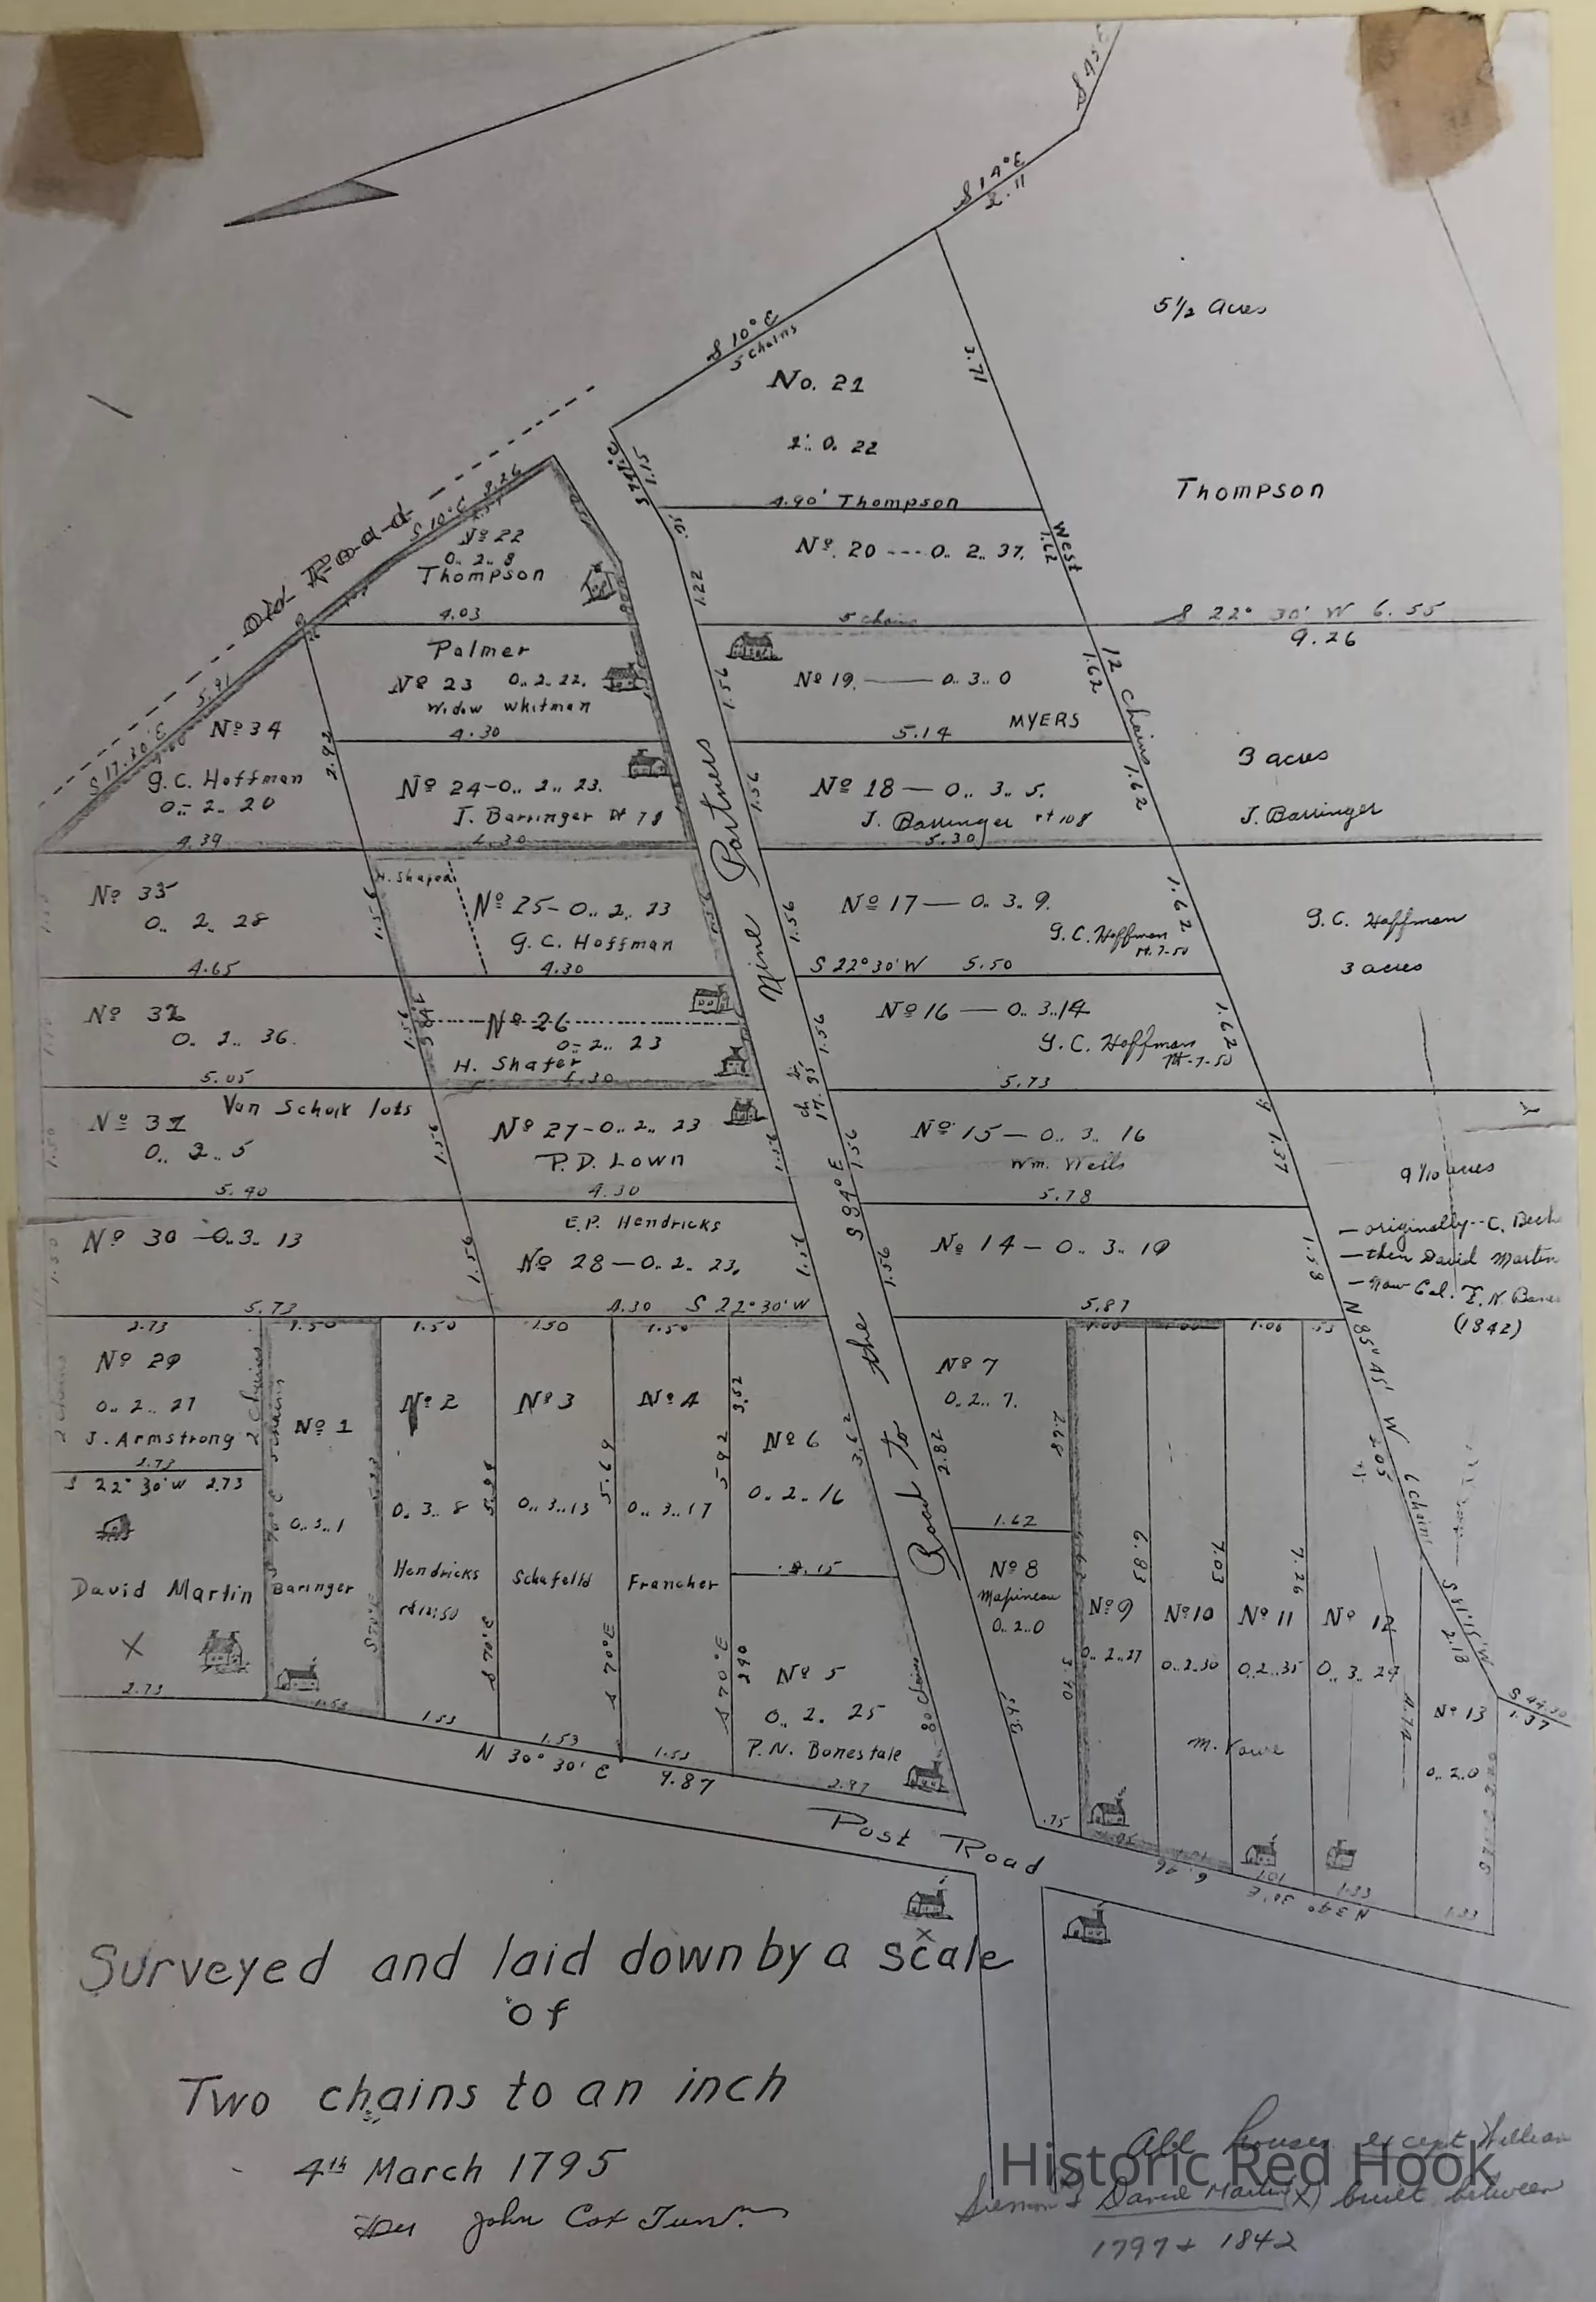 S 45 E
S 14° E
2.11
S 10° E
5 Chains
5 1/2 Acres
3.71
No. 21
2.. 0. 22
1.15
4.90' Thompson
Thompson
West
1.62
Nº. 20 --- 0.. 2.. 37.
1.22
5 chains
S 22° 30' W 6.55
9.26
Old Road
S 10° E 9.26
Nº 22
0.. 2.. 8
Thompson
4.03
Palmer
Nº 23 0.. 2.. 22.
Widow Whitman
4.30
5.91
S 17.30' E
Nº 34
G. C. Hoffman
0.. 2.. 20
4.39
2.92
Nº 24-0.. 2.. 23.
J. Barringer
4.30
Nº 19. — 0.. 3.. 0
MYERS
5.14
1.56
1.62
12 Chains
1.62
Nº 18 — 0.. 3.. 5.
J. Barringer rt 108
5.30
1.56
3 acres
J. Barringer
Nine Partners
Nº 33
0.. 2.. 28
4.65
1.56
H. Shafer
Nº 25-0.. 2.. 23
G. C. Hoffman
4.30
1.56
Nº 17 — 0.. 3.. 9.
G. C. Hoffman
S 22° 30' W 5.50
1.62
G. C. Hoffman
3 acres
Nº 32
0.. 2.. 36.
5.05
1.56
Nº 26
0.. 2.. 23
H. Shafer
4.30
1.56
Nº 16 — 0.. 3..14
G. C. Hoffman
5.73
1.62
Nº 31 Van Schaik lots
0.. 2.. 5
5.40
1.56
Nº 27-0.. 2.. 23
P. D. Lown
4.30
1.56
S 94° E
1.56
Nº 15 — 0.. 3.. 16
Wm. Wells
5.78
1.37
9 1/10 acres
— originally -- C. Beck
— then David Martin
— Now Col. E. N. Banes
(1842)
Nº 30 -0..3.. 13
5.73
1.56
E. P. Hendricks
Nº 28 — 0.. 2.. 23.
4.30 S 22° 30' W
1.56
1.56
Nº 14 — 0.. 3.. 19
5.87
1.58
N 85° 45' W
6 chains
2.73
Nº 29
0.. 2.. 27
J. Armstrong
2.73
S 22° 30' W 2.73
David Martin
X
2.73
2 chains
1.50
Nº 1
0.. 3.. 1
Baringer
1.53
1.50
Nº 2
0.. 3.. 8
Hendricks
S 70° E
1.53
1.50
Nº 3
0.. 3..13
Schufeldt
5.69
S 70° E
1.53
1.50
Nº 4
0.. 3..17
Francher
5.92
S 70° E
2.90
1.53
3.52
Nº 6
0.. 2.. 16
3.62
Nº 5
0.. 2.. 25
P. N. Bonestale
80 chains
2.97
the
Road to
2.82
Nº 7
0.. 2.. 7.
2.68
1.62
Nº 8
0.. 2..0
3.70
.75
Nº 9
0.. 2..27
6.83
1.00
Nº 10
0..2..30
7.03
1.00
Nº 11
0..2..35
7.26
1.01
Nº 12
0.. 3.. 29
1.33
M. Vowe
S 81° 15' W
2.18
Nº 13
0.. 2.0
1.33
S 44.30
1.37
N 30° 30' E
9.87
Post Road
6.46
N 34° 30' E
X
Surveyed and laid down by a scale
of
Two chains to an inch
4th March 1795
Per John Cox Junr.
All houses except William
& David Martin (X) built between
1797 & 1842
Historic Red Hook